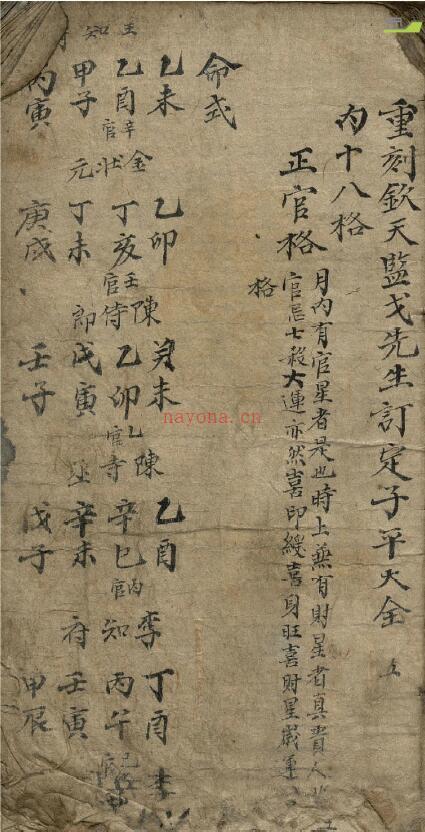 重刻欽天監戈先生訂定子平大全
內十八格
正官格
月內有官星者是也時上兼有財星者真貴人也
官忌七殺大運亦然喜印綬喜身旺喜財星歲運
格
命式
乙未 乙卯 癸未 乙酉 丁酉
金 陳 陳 李 李
乙酉 丁亥 乙卯 辛巳 丙午
辛官 壬官 乙官 丙官
狀元 侍郎 寺 知府
甲子 丁未 戊寅 辛未 壬寅
丙寅 庚戌 壬子 戊子 甲辰
王 知
nayona.cn